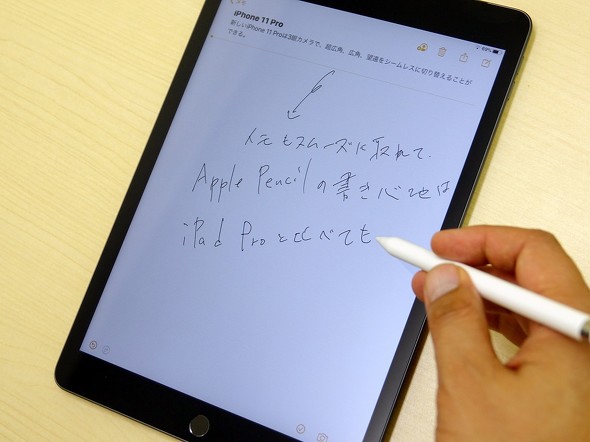 メモ
69%
iPhone 11 Pro
新しいiPhone 11 Proは3眼カメラで、超広角、広角、望遠をシームレスに切り替えることが
できる。
メモもスムーズに取れて、
Apple Pencilの書き心地は
iPad Proと比べても